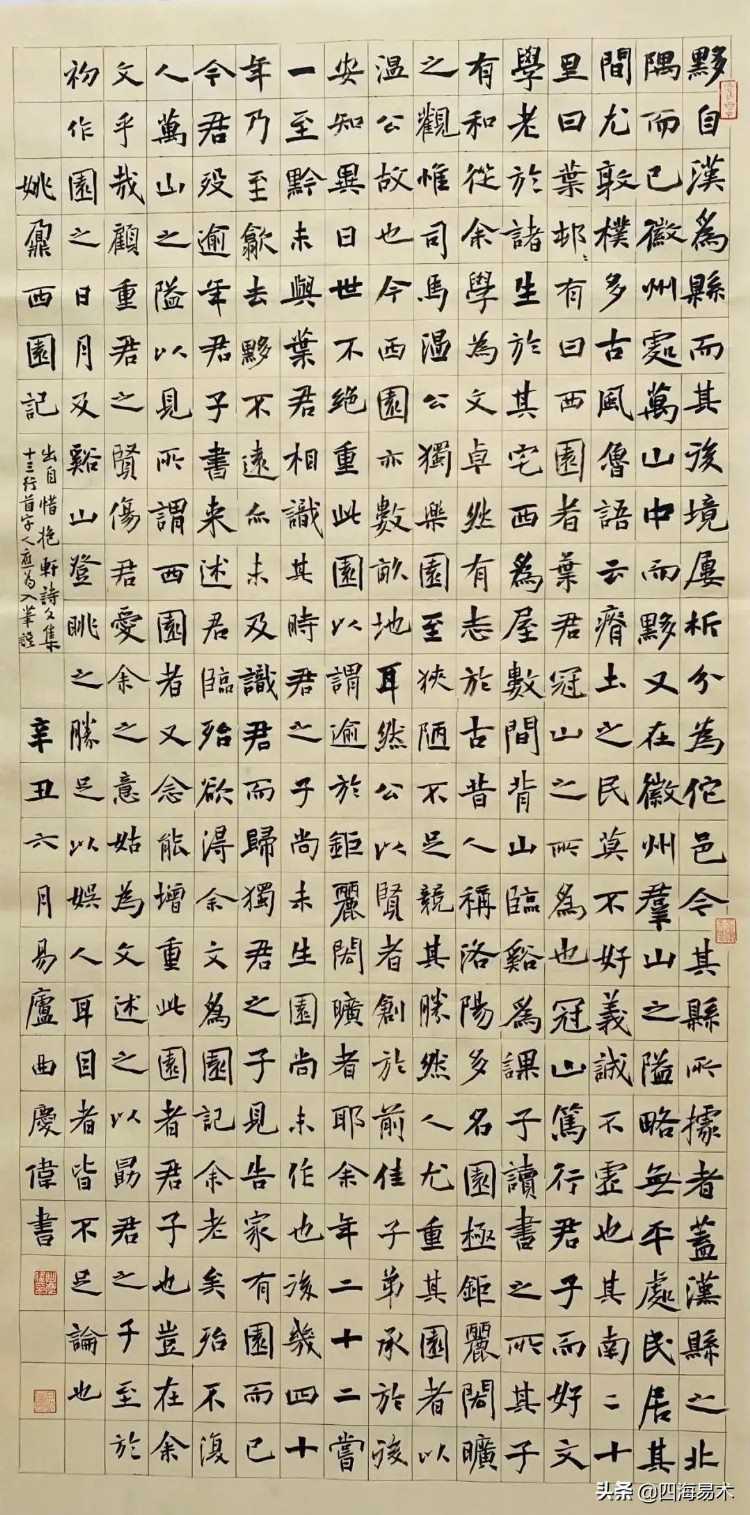 黟自漢為縣而其後境屢析分為佗邑今其縣所據者蓋漢縣之北
隅而已徽州處萬山中而黟又在徽州羣山之隘略無平處民居其
間尤敦樸多古風魯語云瘠土之民莫不好義誠不虛也其南二十
里曰葉邨、有曰西園者葉君冠山之所為也冠山篤行君子而好文
學老於諸生於其宅西為屋數間背山臨谿為課子讀書之所其子
有和從余學為文卓然有志於古昔人稱洛陽多名園極鉅麗閎曠
之觀惟司馬温公獨樂園至狹陋不足競其勝然人尤重其園者以
温公故也今西園亦數畝地耳然公以賢者創於前佳子弟承於後
安知異日世不絕重此園以謂逾於鉅麗閎曠者耶余年二十二嘗
一至黔未與葉君相識其時君之子尚未生園尚未作也後幾四十
年乃至歙去黟不遠而未及識君而歸獨君之子見告家有園而已
今君歿逾年君子書来述君臨殆欲得余文為園記余老矣殆不復
人萬山之隘以見所謂西園者又念能增重此園者君子也豈在余
文乎哉顧重君之賢傷君愛余之意姑為文述之以勗君之子至於
初作園之日月及谿山登眺之勝足以娛人耳目者皆不足論也
姚鼐西園記
出自惜抱軒詩文集
十三行首字人應為入筆誤
辛丑六月易廬曲慶偉書
头条 @四海易术